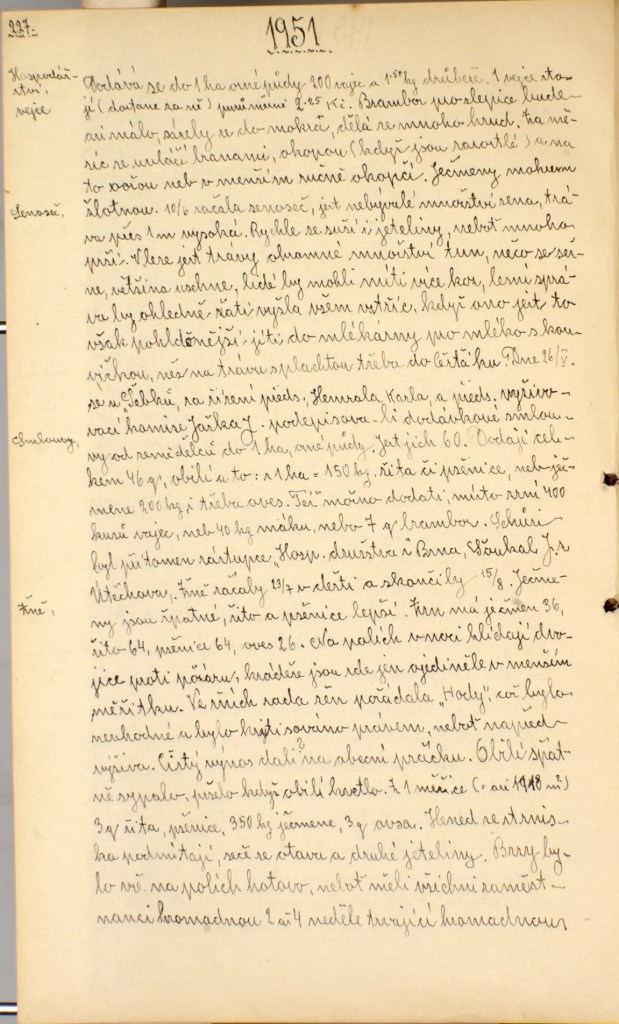 227.
1951
Hospodář-
ství,
vejce
Dodává se do 1 ha orné půdy 200 vajec a 1·50 kg drůbeže. 1 vejce sto-
jí (dostane za ně) průměrně 2·25 Kč. Brambor pro slepice bude
asi málo, sázely se do mokra, dělá se mnoho hrud. Za mě-
síc se uvláčí branami, okopou (když jsou zarostlé) a na
to oořou neb v menším ručně okopčí. Ječmeny mokrem
žlotnou.
Senoseč,
10/6 začala senoseč, jest nebývalé množství sena, trá-
va přes 1 m vysoká. Rychle se suší i jeteliny, neboť mnoho
prší. V lese jest trávy ohromné množství tun, něco se se-
ne, většina uschne, lidé by mohli míti více koz, lesní sprá-
va by ohledně žatí vyšla všem vstříc, když ono jest to
však pohldenější jíti do mlékárny pro mléko s kon-
vičkou, než na trávu s plachtou třeba do Čertáku. Dne 26/V.
se u Šebků, za řízení předs. Hemzala Karla, a předs. vyživo-
vací komise Jaška J. podepisova-li dodávkové smlou-
Smlouvy,
vy od zemědělců do 1 ha, orné půdy. Jest jich 60. Dodají cel-
kem 46 q, obilí a to: z 1 ha = 150 kg, žita či pšenice, neb ječ-
mene 200 kg, i třeba oves. Též možno dodati, místo zrní 400
kusů vajec, neb 40 kg máku, nebo 7 q brambor. Schůzi
byl přítomen zástupce „Hosp. družstva z Brna, Doukal J. z
Útěchova.
Žně,
Žně začaly 23/7 v dešti a skončily 15/8. Ječme-
ny jsou špatné, žito a pšenice lepší. Zrn má ječmen 36,
žito 64, pšenice 64, oves 26. Na polích v noci hlídají dvo-
jice proti požáru, krádeže jsou zde jen ojediněle v menším
měřítku. Ve žních rada žen pořádala „Hody", což bylo
nevhodné a bylo kritisováno právem, neboť napřed
výživa. Čistý výnos dali? na obecní pračku. Obilí špat-
ně sypalo, pršelo když obilí kvetlo. Z 1 měřice (= asi 1918 m²)
3 q žita, pšenice, 350 kg ječmene, 3 q ovsa. Hened se strnis-
ka podmítají, seče se otava a druhé jeteliny. Brzy by-
lo vše na polích hotovo, neboť měli všichni zaměst-
nanci hromadnou 2 až 4 neděle trvající hromadnou